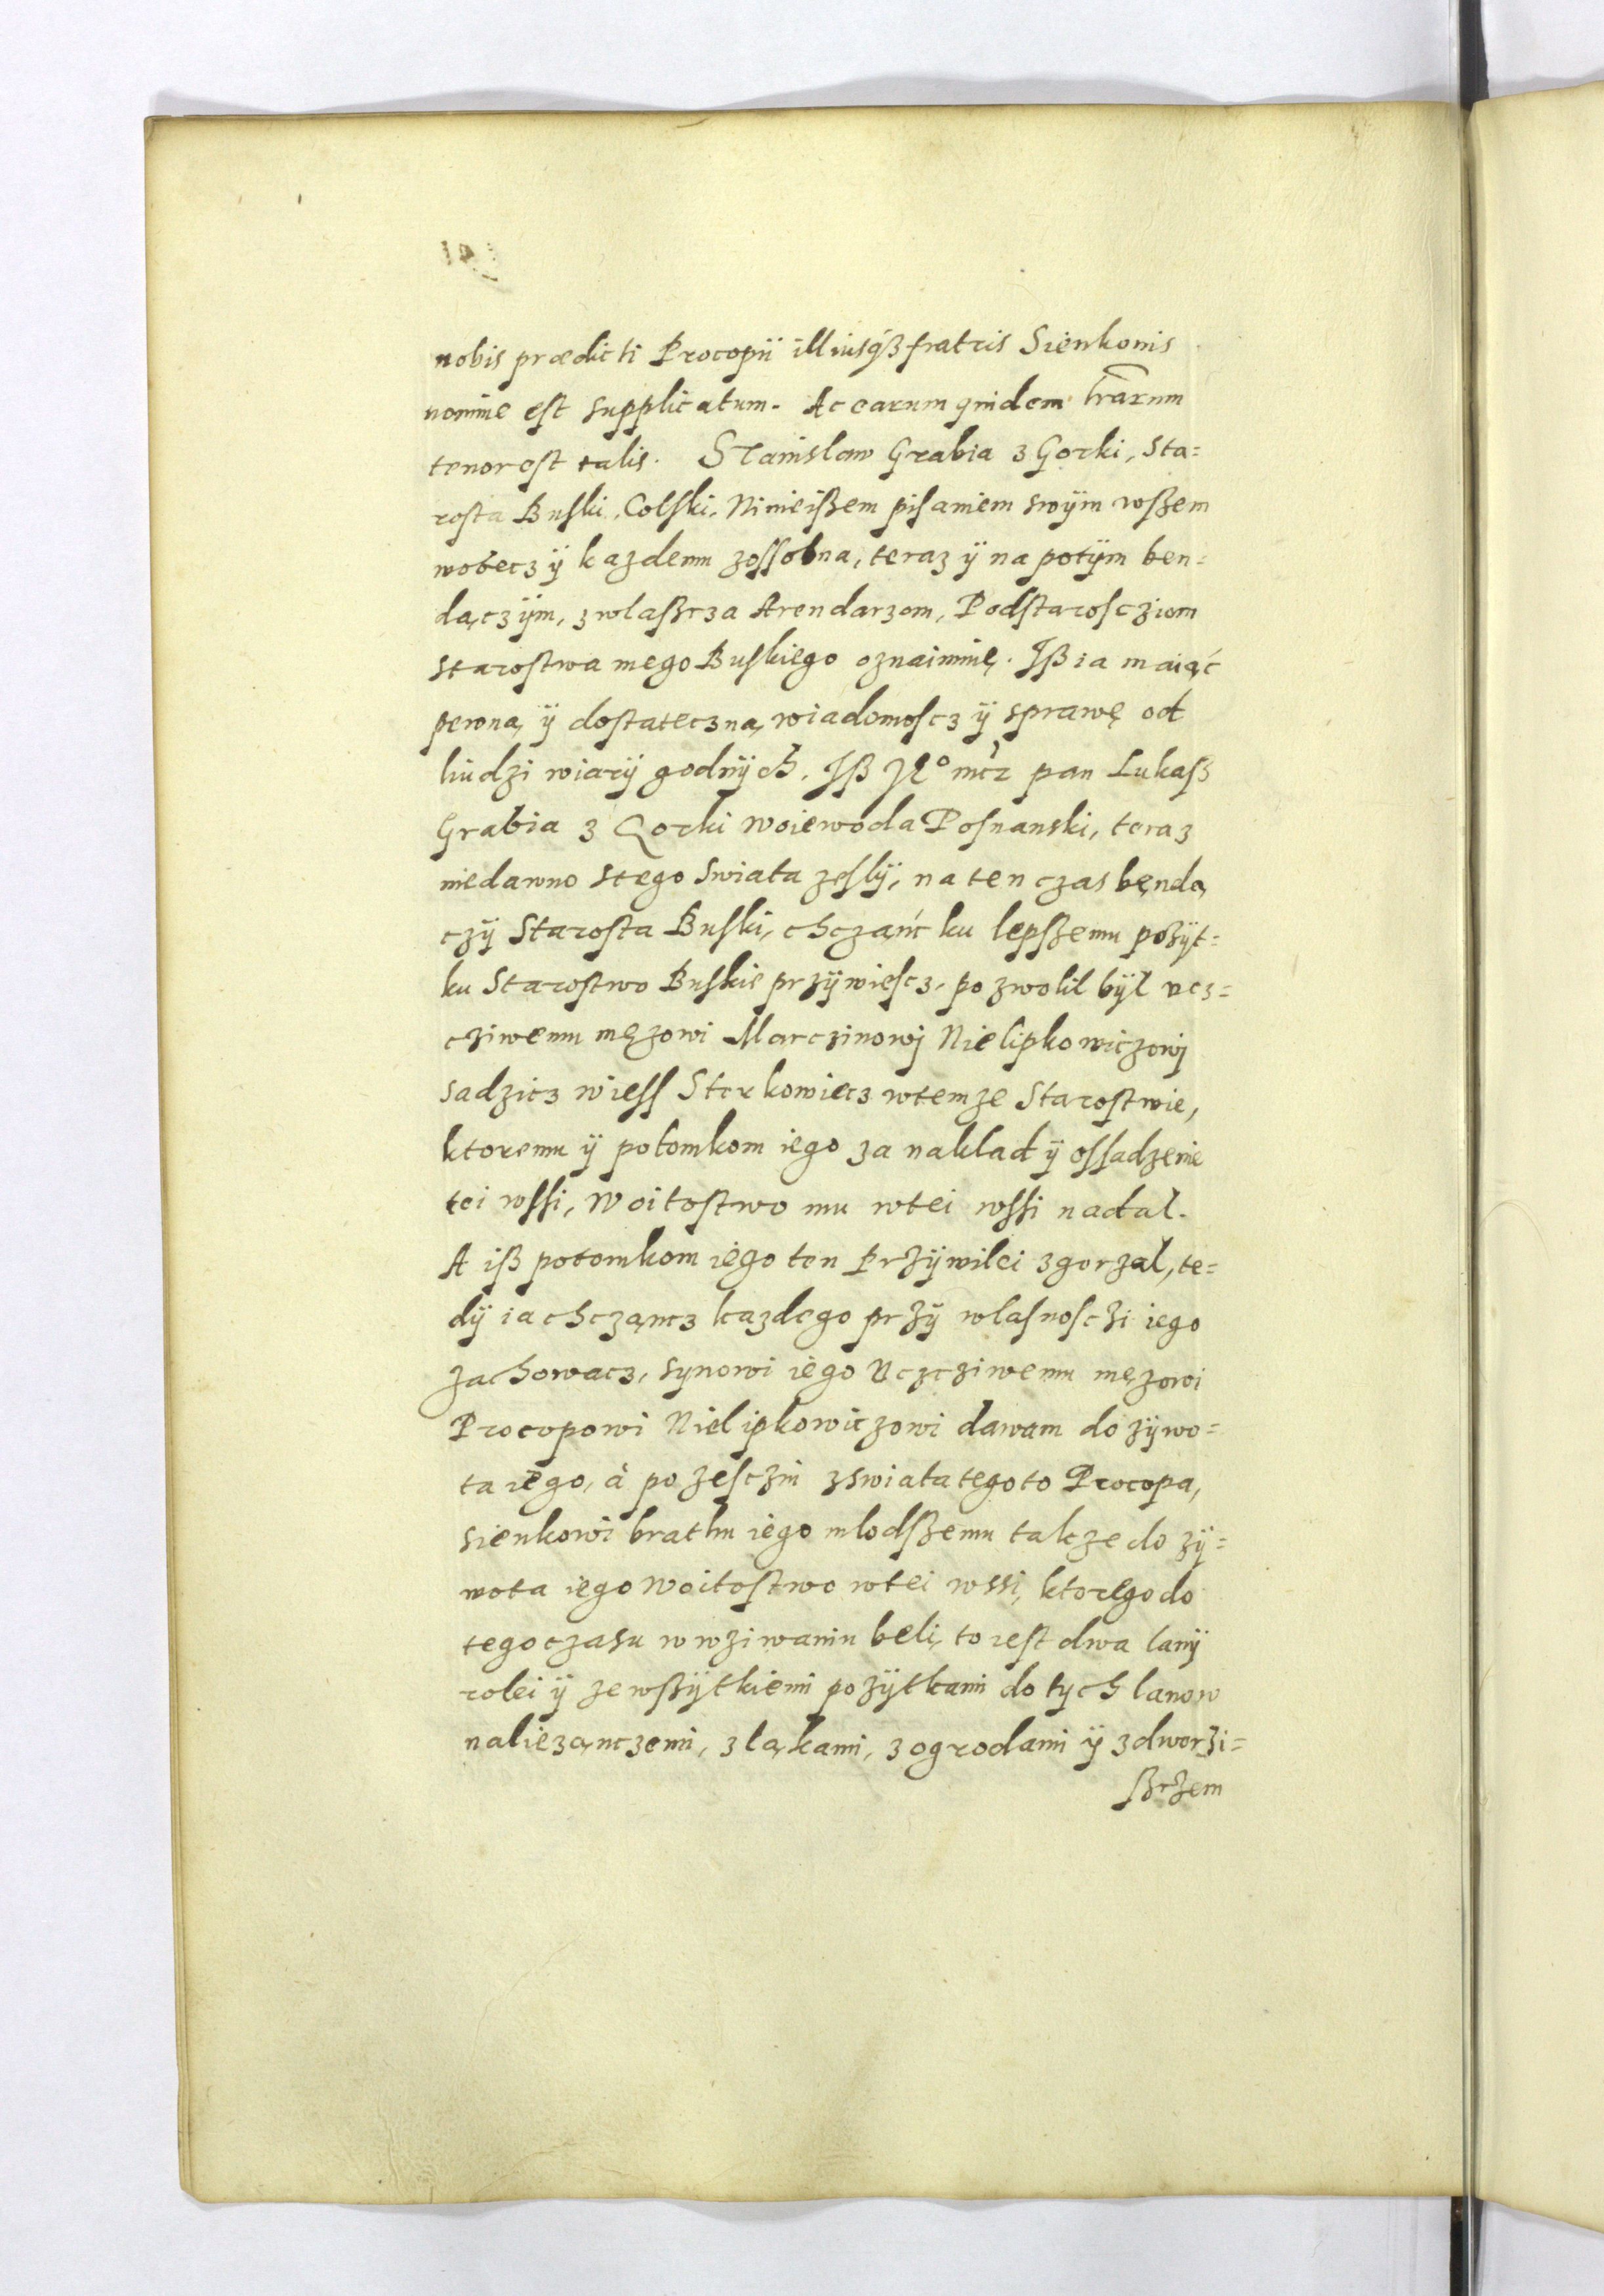 nobis prædicti Procopii illiusq́ʒ fratris Sienkonis
nomine est supplicatum. Ac earum quidem lr̃arum
tenor est talis. Stanislaw Grabia z Gorki, Sta=
rosta Buski, Colski. Ninieißem pisaniem swÿm wßem
wobecz ÿ kazdemu zossobna, teraz ÿ na potÿm ben=
dączÿm, zwlaßcza Arendarzom, Podstaroscziom
starostwa mego Buskiego oznaimuię. Iß ia maiąć
pewną ÿ dostateczną wiadomoscz ÿ sprawę od
liudzi wiarÿ godnÿch. Iß Je° mc̀z pan Lukasz
Grabia z Gorki Woiewoda Posnanski, teraz
niedawno stego swiata zeslÿ, na ten czas bęndą
czÿ Starosta Buski, chcząńc ku lepszemu pożÿt=
ku Starostwo Buskie przÿwiescz, pozwolil bÿl ucz=
cziwemu mężowi Marczinowj Nielipkowiczowj
sadzicz wiess Sterkowiecz wtemze Starostwie,
ktoremu ÿ potomkom iego za naklad ÿ ossadzenie
tei wssi, Woitostwo mu wtei wssi nadal.
A iß potomkom iego ten Przÿwilei zgorzal, te=
dÿ ia chcząncz kazdego przÿ wlasnosczi iego
zachowacz, synowi iego Uczcziwemu mężowi
Procopowi Nielipkowiczowi dawam do zÿwo=
ta iego, à po zesczin zswiata tegoto Procopa,
sienkowi brathu iego mlodszemu takze do zÿ=
wota iego Woitostwo wtei wssi, ktorego do
tego czasu w wziwaniu beli, to iest dwa lanÿ
rolei ÿ zewszÿtkiemi pozÿtkami do tych lanow
naliezączemi, z ląkami, z ogrodami ÿ zdworzi=
ßczem